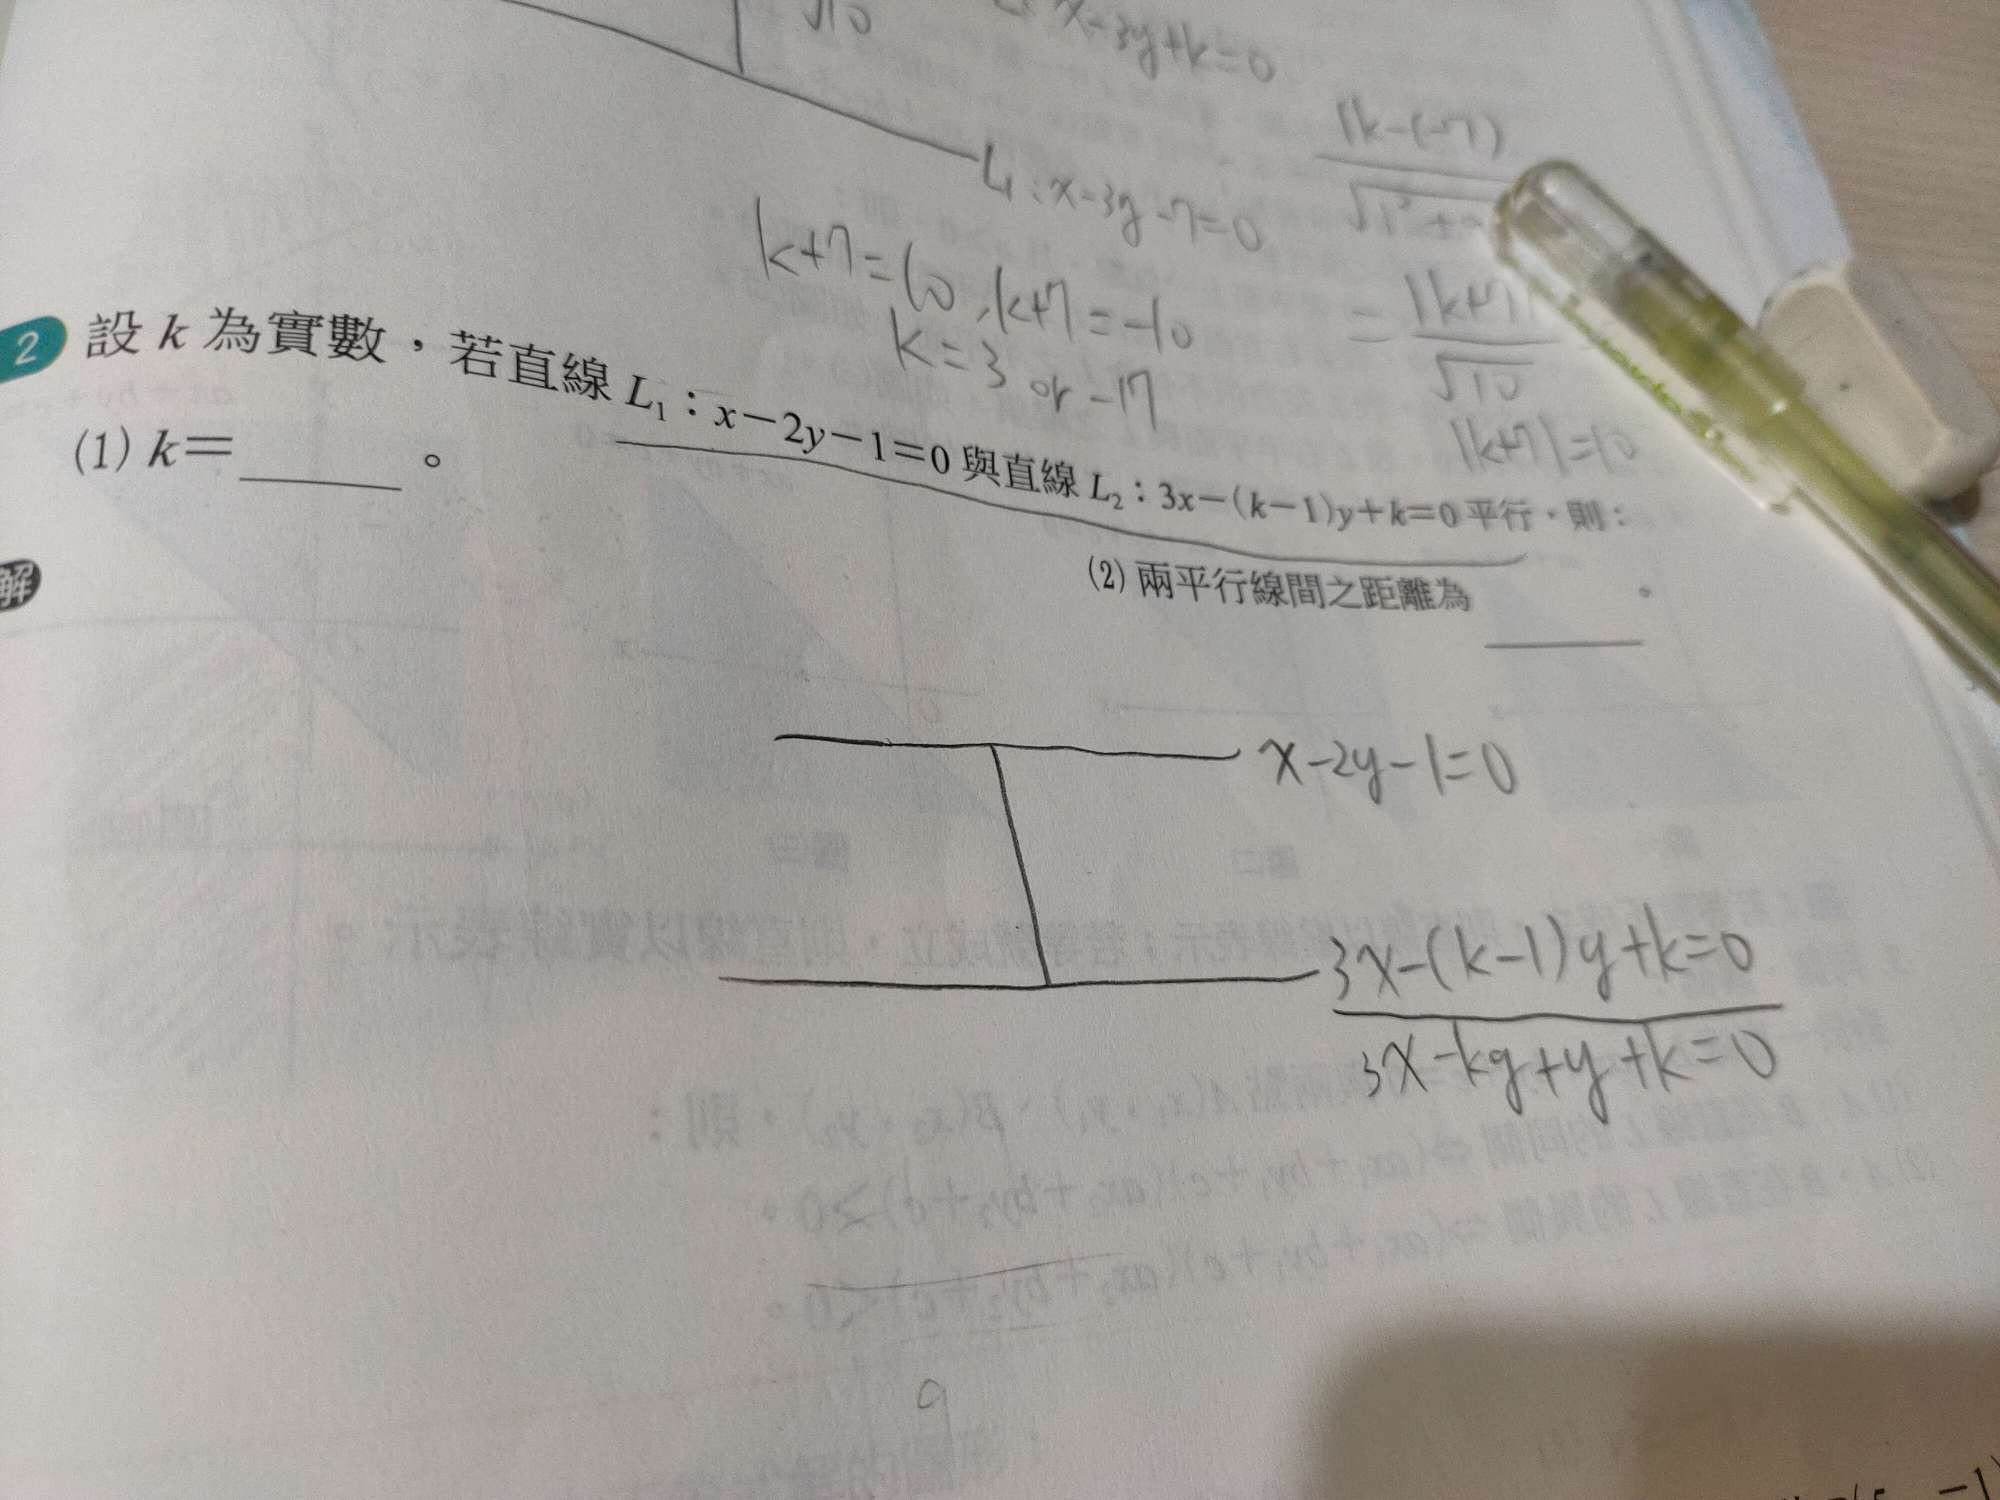 √10
x-3y+k=0
L₁:x-3y-7=0
|k-(-7)
√1²+
k+7=10,k+7=-10
=|k+7|
√10
k=3 or -17
|k+7|=10
2 設 k 為實數,若直線 L₁:x-2y-1=0 與直線 L₂:3x-(k-1)y+k=0 平行,則:
(1) k=______。 (2) 兩平行線間之距離為______。
解
x-2y-1=0
3x-(k-1)y+k=0
3x-ky+y+k=0